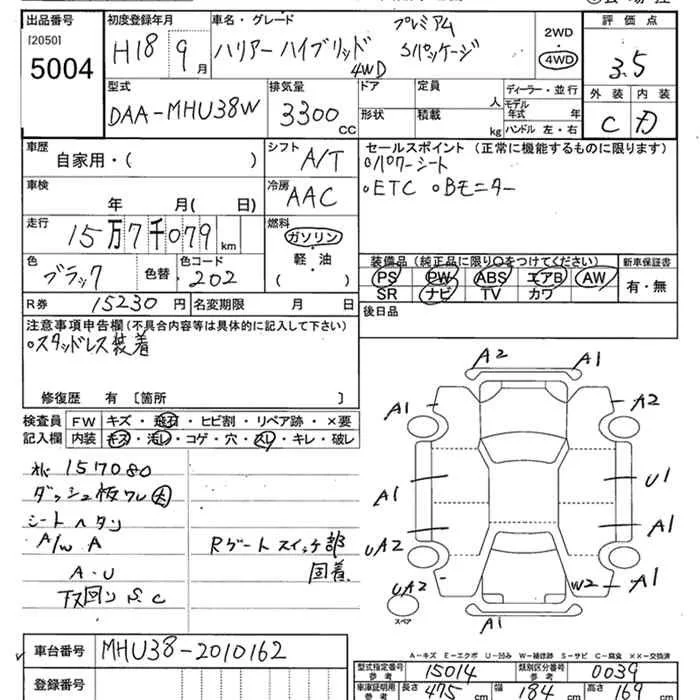 出品番号 初度登録年月 車名・グレード プレミアム 2WD 評価点
[2050] H18 9月 ハリアーハイブリッド Sパッケージ 4WD 3.5
5004 4WD
型式 排気量 ドア 定員 ディーラー・並行 外装 内装
DAA-MHU38W 3300CC 人 モデル年式 年 C D
形状 積載 kg ハンドル 左・右
車歴 シフト セールスポイント(正常に機能するものに限ります)
自家用・( ) A/T oパワーシート
車検 冷房 oETC oBモニター
年 月( 日) AAC
走行 燃料
15万7千079km ガソリン
軽・油
( )
色 色コード 装備品(純正品に限り○をつけてください) 新車保証書
ブラック 色替 202 PS PW ABS エアB AW 有・無
R券 15230円 名変期限 月 日 SR ナビ TV カワ
後日品
注意事項申告欄(不具合内容等は具体的に記入して下さい)
oスタッドレス装着
修復歴 有 [箇所 ]
検査員 FW キズ・飛石・ヒビ割・リペア跡・×要
記入欄 内装 キズ・汚レ・コゲ・穴・スレ・キレ・破レ
157080
ダッシュ板ワレ大
シートヘタリ
A/W A
Rゲートスイッチ部
固着
A・U
下回り S.C
A2 A1
A1 A2
A1 U1
A1
UA2
UA2 W2 A1
スペア
A1
A-キズ E-エクボ U-凹み W-補修跡 S-サビ C-腐食 ××-交換済
車台番号 MHU38-2010162
型式指定番号 参考 15014 類別区分番号 参考 0039
登録番号
車庫証明用 参考 長さ 475cm 幅 184cm 高さ 169cm